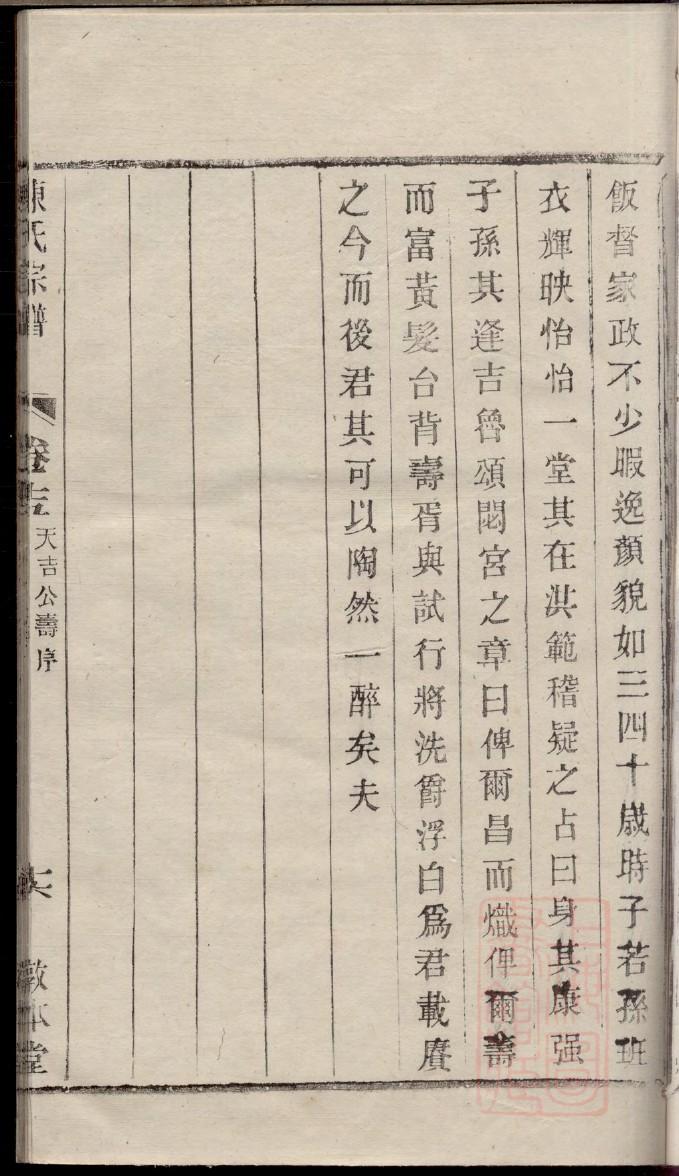 飯督家政不少暇逸顏貌如三四十歲時子若孫班
衣輝映怡怡一堂其在洪範稽疑之占曰身其康强
子孫其逢吉魯頌閟宮之章曰俾爾昌而熾俾爾壽
而富黃髮台背壽胥與試行將洗爵浮白爲君載賡
之今而後君其可以陶然一醉矣夫
陳氏宗譜
卷
天吉公壽序
敦本堂